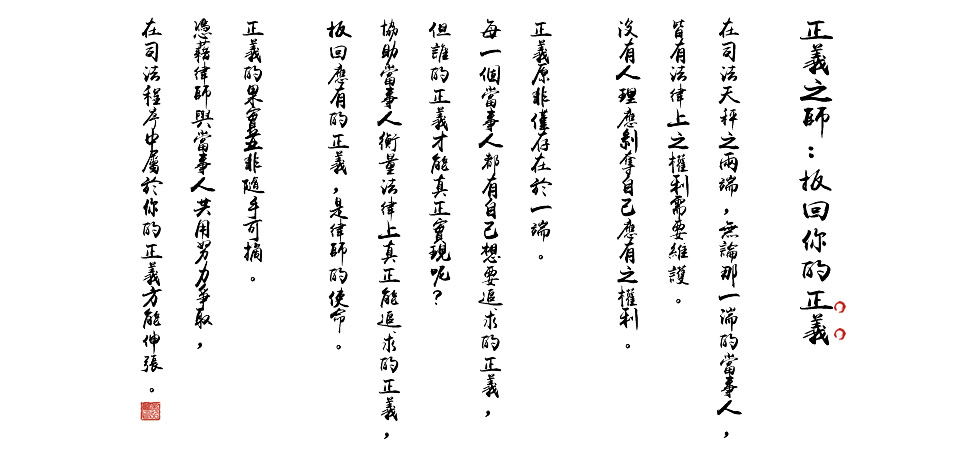 正義之師：扳回你的正義
在司法天秤之兩端，無論那一湍的當事人，
皆有法律上之權利需要維護。
沒有人理應剝奪自己應有之權利。
正義原非僅存在於一端。
每一個當事人都有自己想要追求的正義，
但誰的正義才能真正實現呢？
協助當事人衡量法律上真正能追求的正義，
扳回應有的正義，是律師的使命。
正義的果實並非隨手可摘。
憑藉律師與當事人共用努力爭取，
在司法程序中屬於你的正義方能伸張。